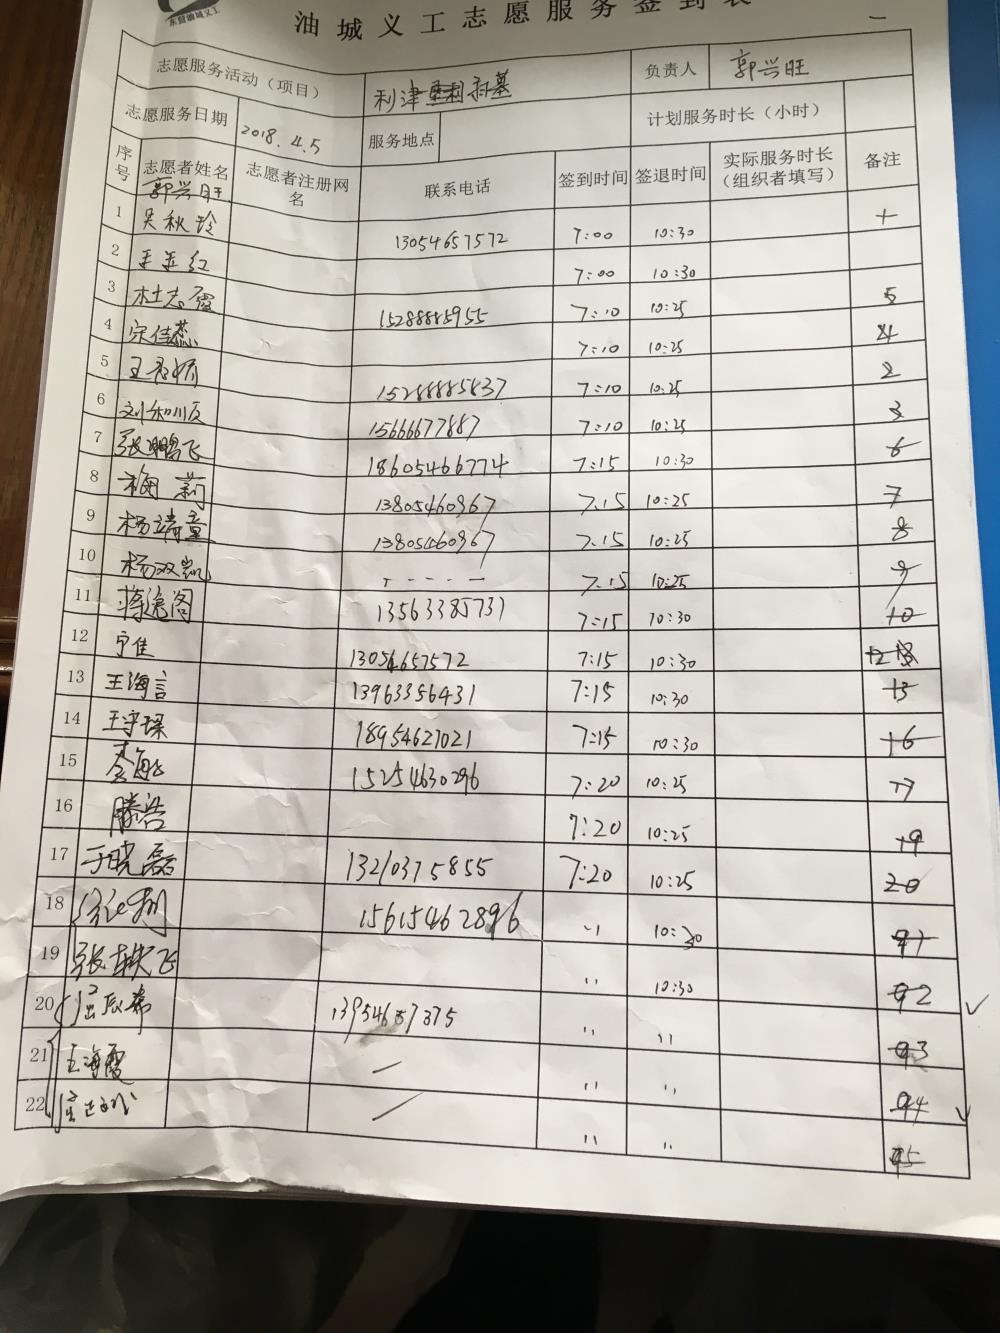 东营油城义工
油城义工志愿服务签到表
志愿服务活动（项目） 利津 负责人 郭兴旺
志愿服务日期 2018.4.5 服务地点 计划服务时长（小时）
序号 志愿者姓名 志愿者注册网名 联系电话 签到时间 签退时间 实际服务时长（组织者填写） 备注
郭兴旺
1 吴秋玲 13054657572 7:00 10:30 1
2 王亚红 7:00 10:30
3 杜志霞 15288885955 7:10 10:25 5
4 宋佳蕊 7:10 10:25 4
5 王 娇 15288885837 7:10 10:25 2
6 刘和顺 15666677887 7:10 10:25 3
7 张鹏飞 18605466774 7:15 10:30 6
8 梅莉 13805460967 7:15 10:25 7
9 杨靖童 13805460967 7:15 10:25 8
10 杨双凯 7:15 10:25 9
11 蒋逸阁 13563385731 7:15 10:30 10
12 宁佳 13054657572 7:15 10:30 12
13 王海言 13963356431 7:15 10:30 13
14 王守琛 18954627021 7:15 10:30 16
15 15254630296 7:20 10:25 17
16 滕浩 7:20 10:25 19
17 于晓磊 13210375855 7:20 10:25 20
18 15615462896 〃 10:30 91
19 张轶飞 〃 10:30 92
20 屈辰希 13954657375 〃 〃 93
21 王海霞 — 〃 〃 94
22 — 〃 〃 95